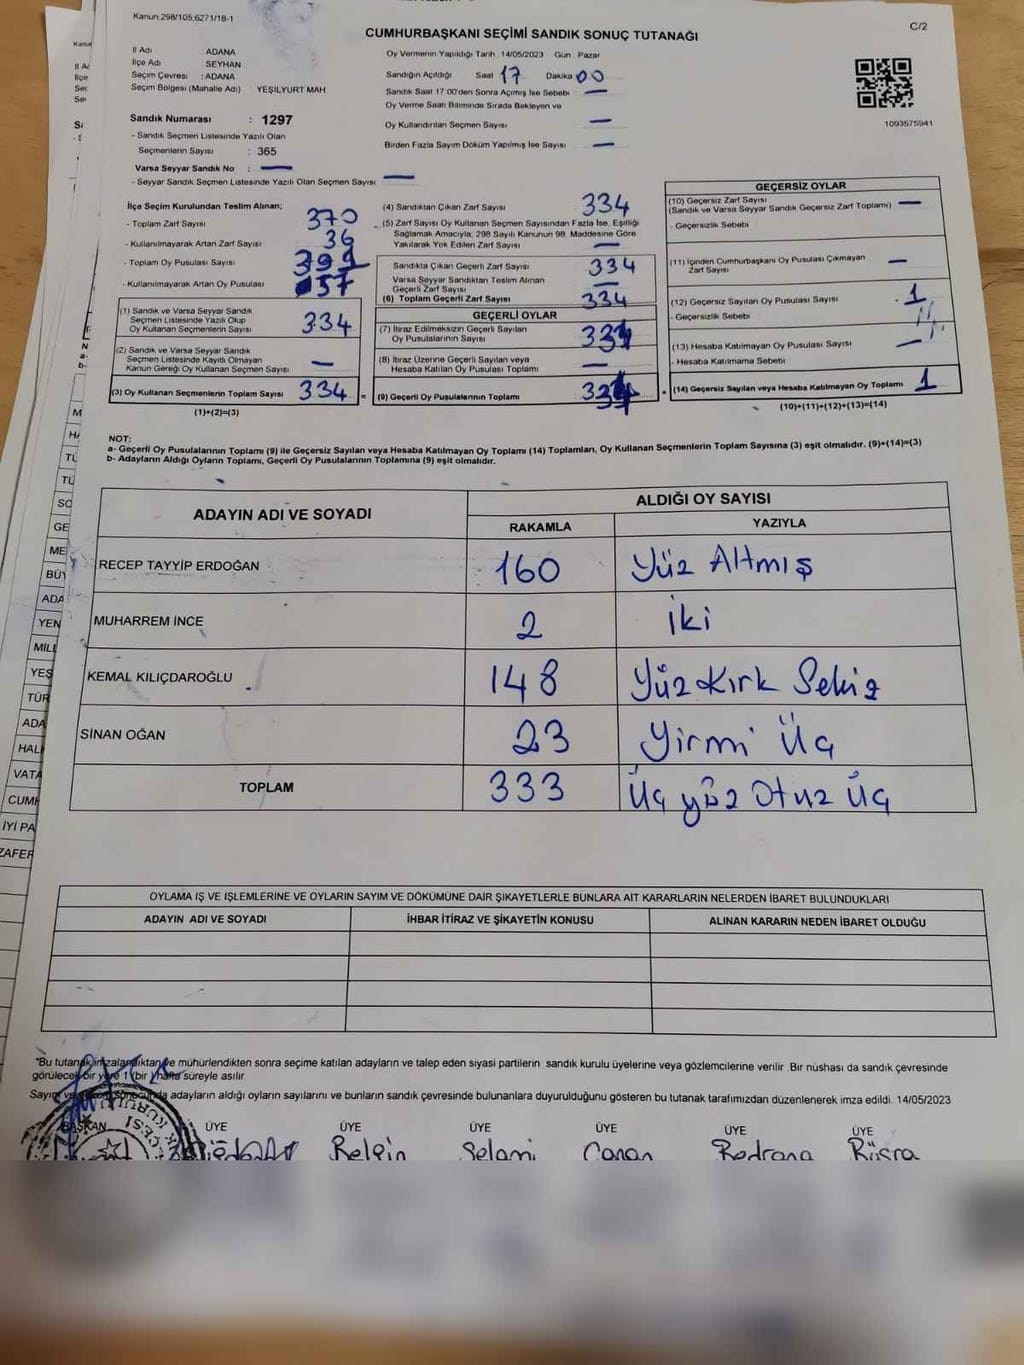 Kanun:298/105;6271/18-1
C/2
CUMHURBAŞKANI SEÇİMİ SANDIK SONUÇ TUTANAĞI
İl Adı : ADANA
İlçe Adı : SEYHAN
Seçim Çevresi : ADANA
Seçim Bölgesi (Mahalle Adı) YEŞİLYURT MAH
Sandık Numarası : 1297
- Sandık Seçmen Listesinde Yazılı Olan
Seçmenlerin Sayısı : 365
Varsa Seyyar Sandık No : —
- Seyyar Sandık Seçmen Listesinde Yazılı Olan Seçmen Sayısı —
Oy Vermenin Yapıldığı Tarih : 14/05/2023 Gün : Pazar
Sandığın Açıldığı Saat 17 Dakika 00
Sandık Saat 17:00'den Sonra Açılmış İse Sebebi : —
Oy Verme Saati Bitiminde Sırada Bekleyen ve
Oy Kullandırılan Seçmen Sayısı : —
Birden Fazla Sayım Döküm Yapılmış İse Sayısı : —
1093575941
İlçe Seçim Kurulundan Teslim Alınan;
- Toplam Zarf Sayısı 370
- Kullanılmayarak Artan Zarf Sayısı 36
- Toplam Oy Pusulası Sayısı
- Kullanılmayarak Artan Oy Pusulası 57
(1) Sandık ve Varsa Seyyar Sandık
Seçmen Listesinde Yazılı Olup
Oy Kullanan Seçmenlerin Sayısı 334
(2) Sandık ve Varsa Seyyar Sandık
Seçmen Listesinde Kayıtlı Olmayan
Kanun Gereği Oy Kullanan Seçmen Sayısı —
(3) Oy Kullanan Seçmenlerin Toplam Sayısı 334
(1)+(2)=(3)
(4) Sandıktan Çıkan Zarf Sayısı 334
(5) Zarf Sayısı Oy Kullanan Seçmen Sayısından Fazla İse, Eşitliği
Sağlamak Amacıyla; 298 Sayılı Kanunun 98. Maddesine Göre
Yakılarak Yok Edilen Zarf Sayısı —
Sandıkta Çıkan Geçerli Zarf Sayısı 334
Varsa Seyyar Sandıktan Teslim Alınan
Geçerli Zarf Sayısı —
(6) Toplam Geçerli Zarf Sayısı 334
GEÇERLİ OYLAR
(7) İtiraz Edilmeksizin Geçerli Sayılan
Oy Pusulalarının Sayısı
(8) İtiraz Üzerine Geçerli Sayılan veya
Hesaba Katılan Oy Pusulası Toplamı —
(9) Geçerli Oy Pusulalarının Toplamı
GEÇERSİZ OYLAR
(10) Geçersiz Zarf Sayısı —
(Sandık ve Varsa Seyyar Sandık Geçersiz Zarf Toplamı)
- Geçersizlik Sebebi
(11) İçinden Cumhurbaşkanı Oy Pusulası Çıkmayan
Zarf Sayısı —
(12) Geçersiz Sayılan Oy Pusulası Sayısı 1
- Geçersizlik Sebebi
(13) Hesaba Katılmayan Oy Pusulası Sayısı —
- Hesaba Katılmama Sebebi
(14) Geçersiz Sayılan veya Hesaba Katılmayan Oy Toplamı 1
(10)+(11)+(12)+(13)=(14)
NOT:
a- Geçerli Oy Pusulalarının Toplamı (9) ile Geçersiz Sayılan veya Hesaba Katılmayan Oy Toplamı (14) Toplamları, Oy Kullanan Seçmenlerin Toplam Sayısına (3) eşit olmalıdır. (9)+(14)=(3)
b- Adayların Aldığı Oyların Toplamı, Geçerli Oy Pusulalarının Toplamına (9) eşit olmalıdır.
ADAYIN ADI VE SOYADI
ALDIĞI OY SAYISI
RAKAMLA YAZIYLA
RECEP TAYYİP ERDOĞAN 160 Yüz Altmış
MUHARREM İNCE 2 İki
KEMAL KILIÇDAROĞLU 148 Yüz Kırk Sekiz
SİNAN OĞAN 23 Yirmi Üç
TOPLAM 333 Üç yüz Otuz Üç
OYLAMA İŞ VE İŞLEMLERİNE VE OYLARIN SAYIM VE DÖKÜMÜNE DAİR ŞİKAYETLERLE BUNLARA AİT KARARLARIN NELERDEN İBARET BULUNDUKLARI
ADAYIN ADI VE SOYADI İHBAR İTİRAZ VE ŞİKAYETİN KONUSU ALINAN KARARIN NEDEN İBARET OLDUĞU
*Bu tutanak imzalandıktan ve mühürlendikten sonra seçime katılan adayların ve talep eden siyasi partilerin sandık kurulu üyelerine veya gözlemcilerine verilir. Bir nüshası da sandık çevresinde
görülecek bir yere 1 (bir) hafta süreyle asılır.
adayların aldığı oyların sayılarını ve bunların sandık çevresinde bulunanlara duyurulduğunu gösteren bu tutanak tarafımızdan düzenlenerek imza edildi. 14/05/2023
BAŞKAN ÜYE ÜYE ÜYE ÜYE ÜYE ÜYE
Selami Canan